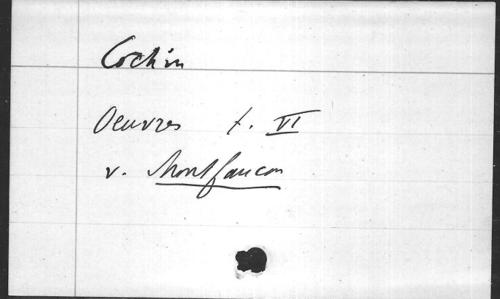 Cochin
Oeuvres t. VI
v. Montfaucon